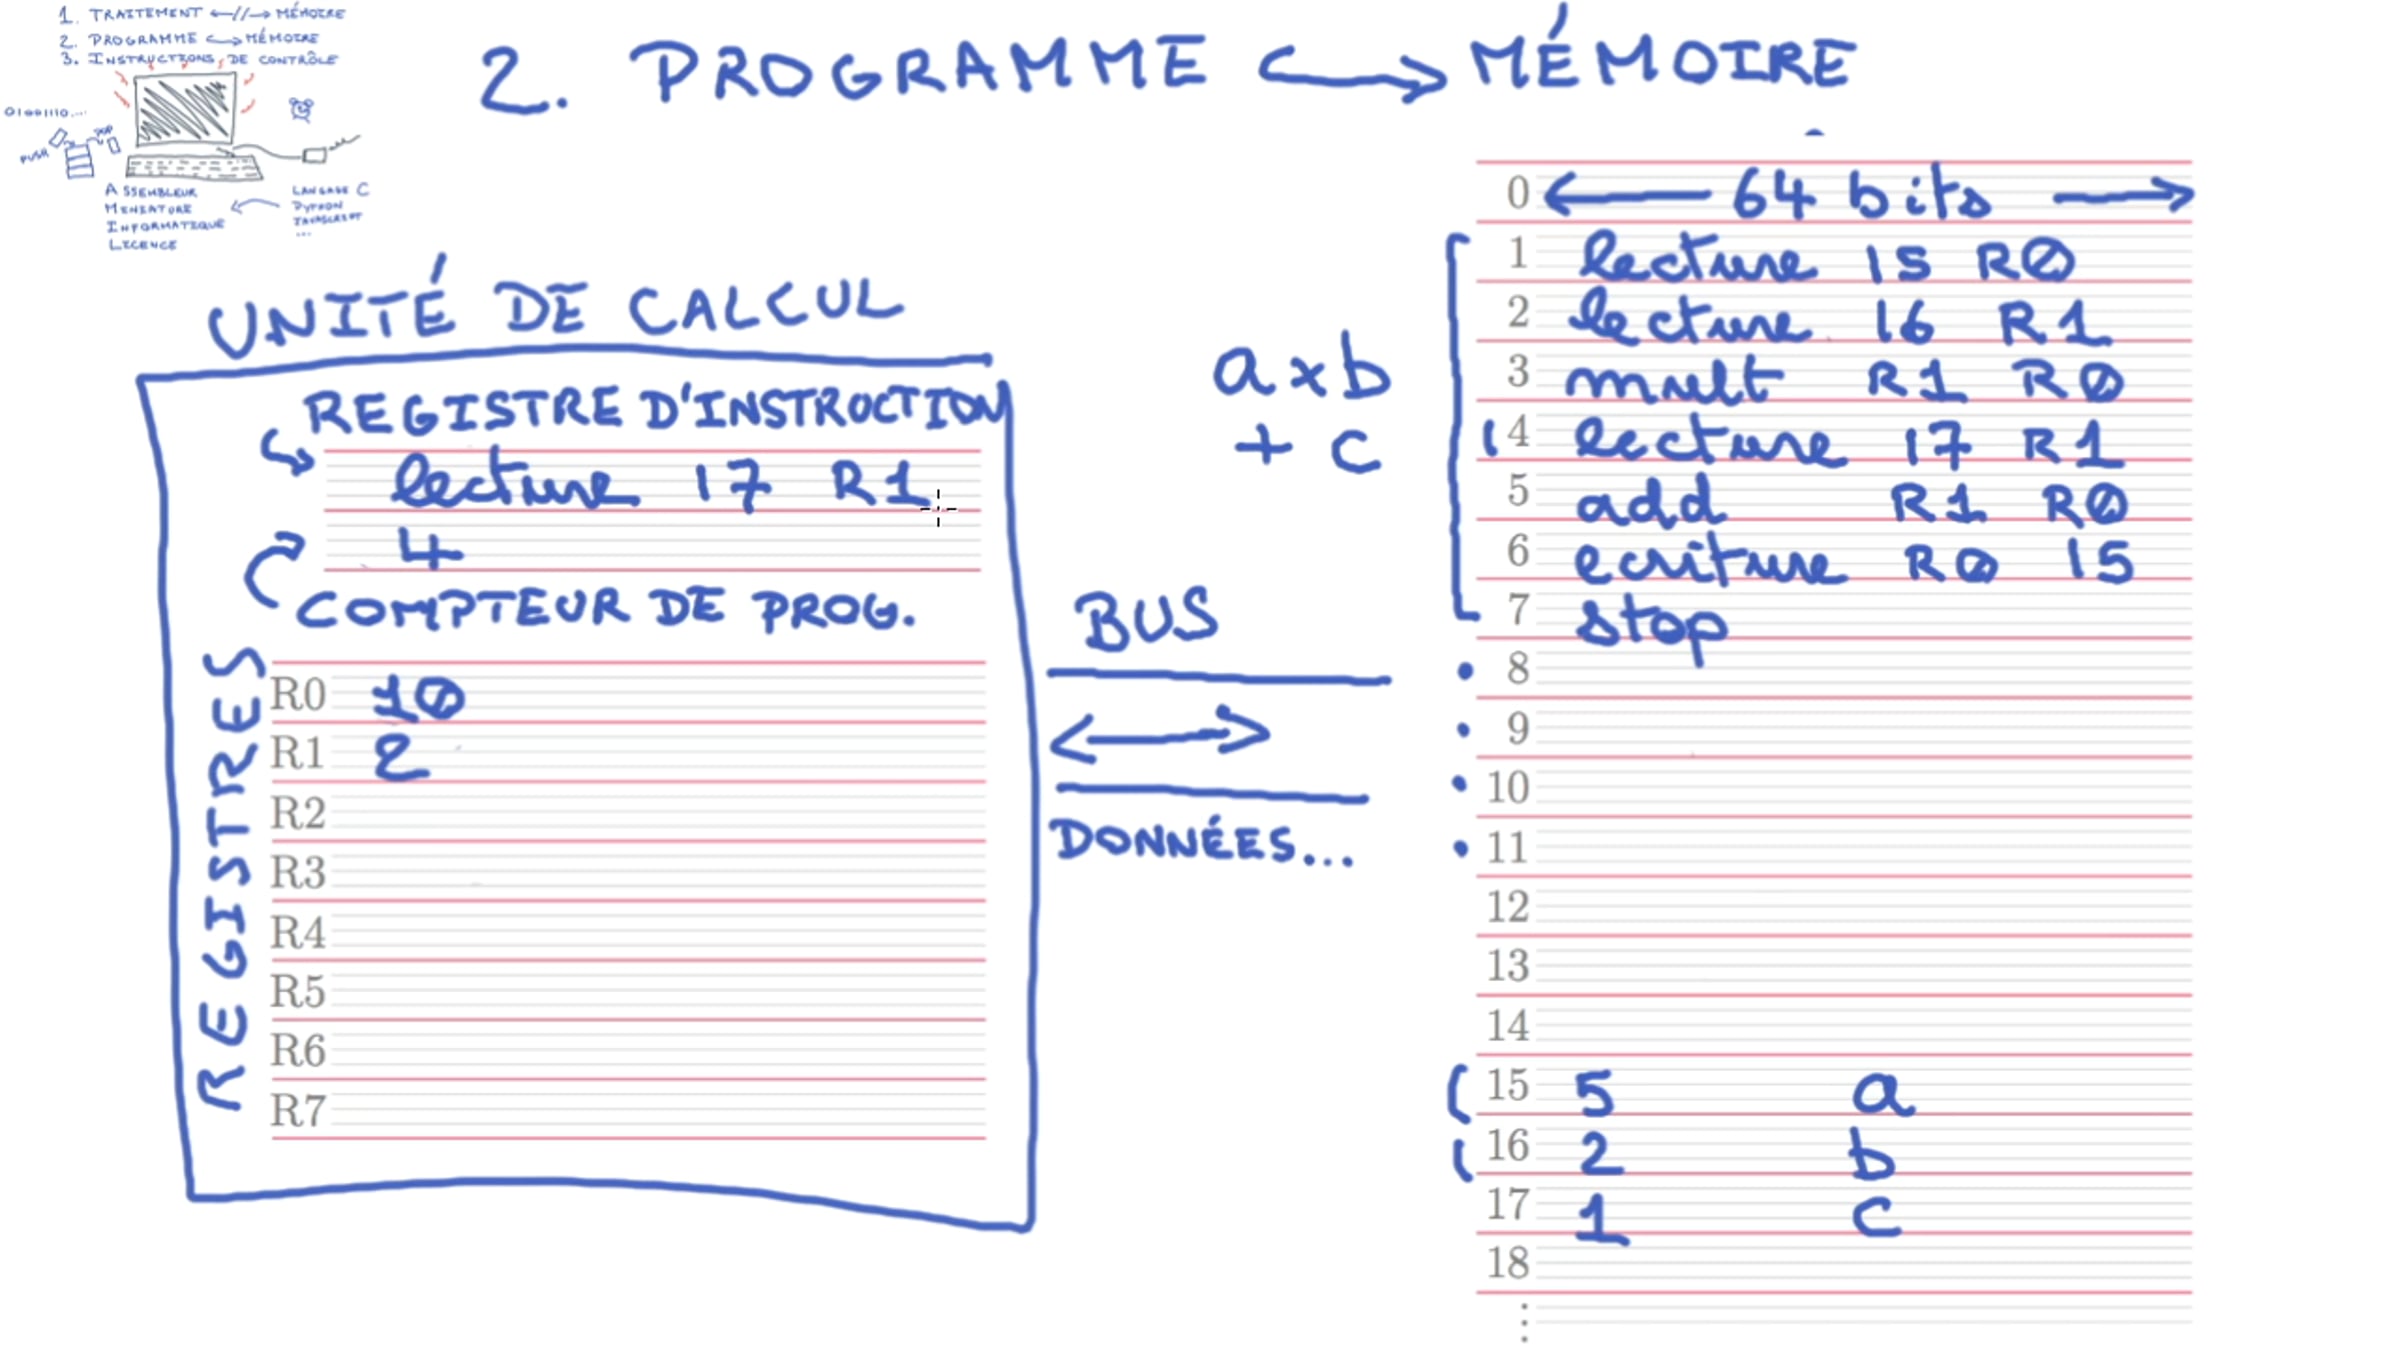 1. TRAITEMENT ←//→ MÉMOIRE
2. PROGRAMME ↪ MÉMOIRE
3. INSTRUCTIONS DE CONTRÔLE
01001110...
PUSH
POP
ASSEMBLEUR
MINIATURE
INFORMATIQUE
LICENCE
LANGAGE C
PYTHON
JAVASCRIPT
...
2. PROGRAMME ↪ MÉMOIRE
UNITÉ DE CALCUL
REGISTRE D'INSTRUCTION
lecture 17 R1
4
COMPTEUR DE PROG.
REGISTRES
R0 10
R1 2
R2
R3
R4
R5
R6
R7
a x b
+ c
BUS
DONNÉES...
0 ← 64 bits →
1 lecture 15 R0
2 lecture 16 R1
3 mult R1 R0
4 lecture 17 R1
5 add R1 R0
6 ecriture R0 15
7 stop
8
9
10
11
12
13
14
15 5 a
16 2 b
17 1 c
18
⋮